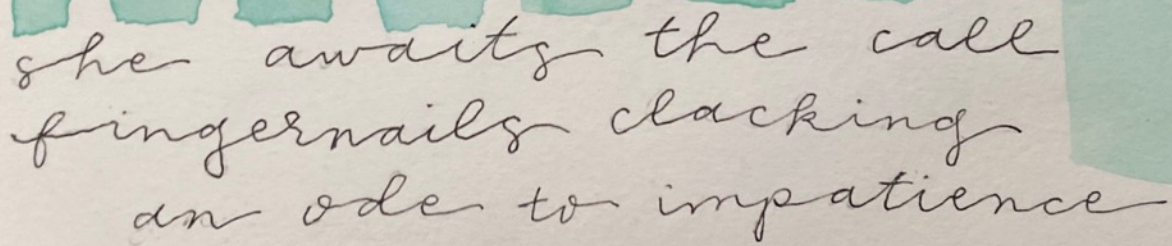 she awaits the call
fingernails clacking
an ode to impatience